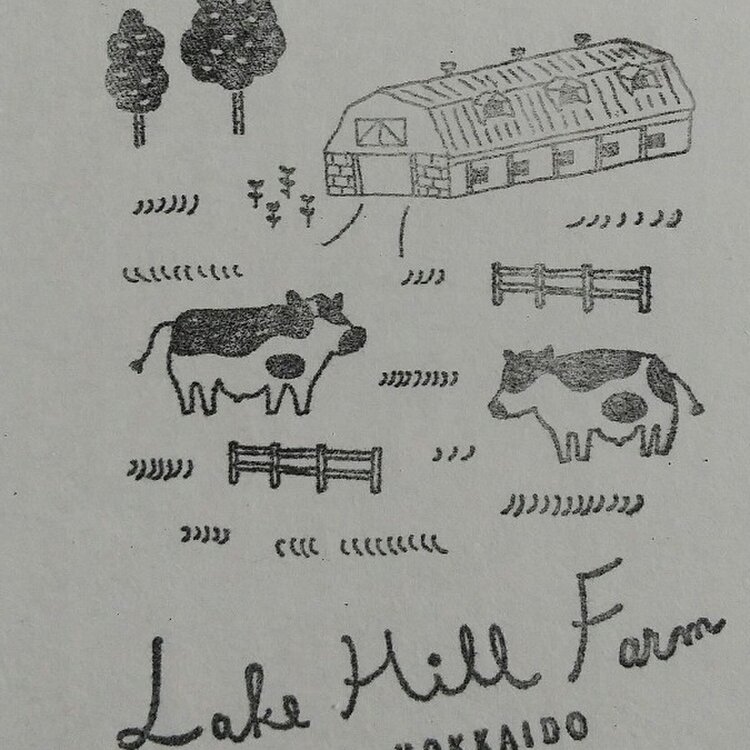 Lake Hill Farm
HOKKAIDO